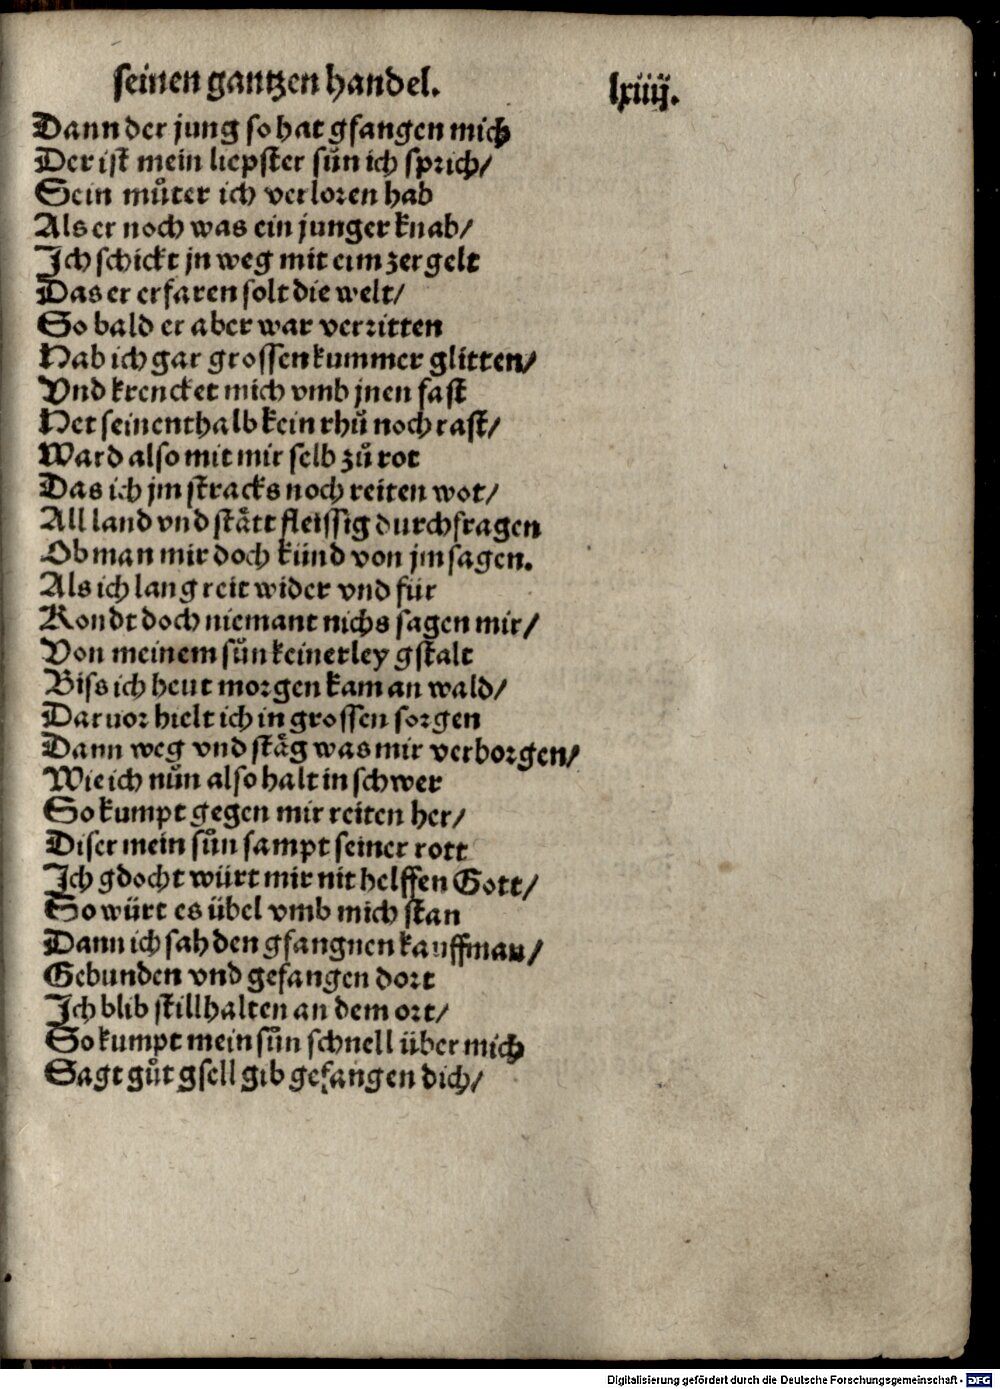 seinen gantzen handel. lxiiij.
Dann der jung so hat gfangen mich
Der ist mein liepster sůn ich sprich/
Sein můter ich verloren hab
Als er noch was ein junger knab/
Ich schickt jn weg mit eim zergelt
Das er erfaren solt die welt/
So bald er aber war verritten
Hab ich gar grossen kummer glitten/
Vnd krencket mich vmb jnen fast
Het seinenthalb kein rhů noch rast/
Ward also mit mir selb zů rot
Das ich jm stracks noch reiten wot/
All land vnd stått fleissig durchfragen
Ob man mir doch künd von jm sagen.
Als ich lang reit wider vnd für
Kondt doch niemant nichs sagen mir/
Von meinem sůn keinerley gstalt
Biss ich heut morgen kam an wald/
Daruor hielt ich in grossen sorgen
Dann weg vnd ståg was mir verborgen/
Wie ich nůn also halt in schwer
So kumpt gegen mir reiten her/
Diser mein sůn sampt seiner rott
Ich gdocht würt mir nit helffen Gott/
So würt es übel vmb mich stan
Dann ich sah den gfangnen kauffman/
Gebunden vnd gefangen dort
Ich blib still halten an dem ort/
So kumpt mein sůn schnell über mich
Sagt gůt gsell gib gefangen dich/
Digitalisierung gefördert durch die Deutsche Forschungsgemeinschaft - DFG